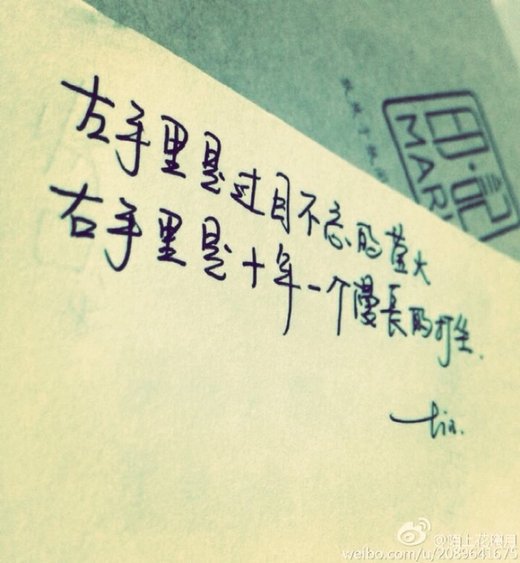 左手里是过目不忘的萤火
右手里是十年一个漫長的打坐.
印·記
MAR
@陌上花開用
weibo.com/u/2089641675